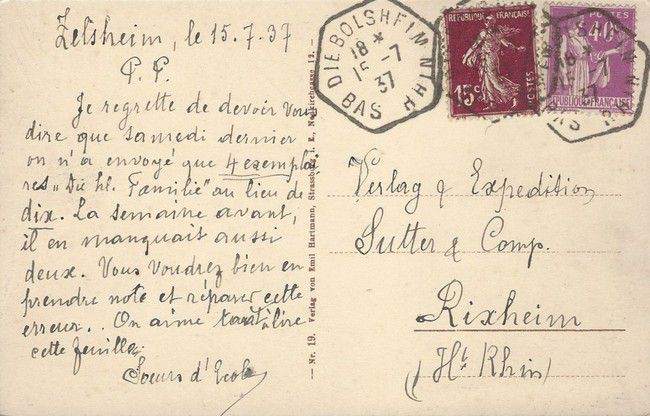 Zelsheim, le 15.7.37
P. P.
Je regrette de devoir vous
dire que samedi dernier
on n'a envoyé que 4 exemplai
res "Die hl. Familie" au lieu de
dix. La semaine avant,
il en manquait aussi
deux. Vous voudrez bien en
prendre note et réparer cette
erreur.. On aime tant à lire
cette feuille.
Soeurs d'Ecole
— Nr. 19. Verlag von Emil Hartmann, Strassburg i. E., Neukirchgasse 12. —
DIEBOLSHEIM
18 *
15 -7
37
BAS RHIN
REPUBLIQUE FRANÇAISE
15c
POSTES
POSTES
40c
REPUBLIQUE FRANÇAISE
37
Verlag & Expedition
Sutter & Comp.
Rixheim
(Ht Rhin)